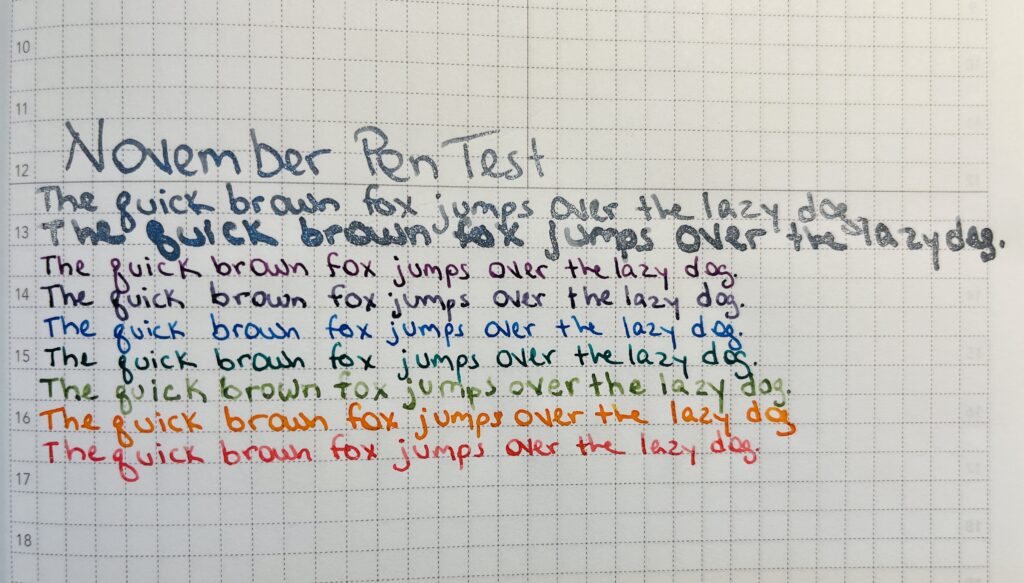 10
11
November Pen Test
12
The quick brown fox jumps over the lazy dog.
13 The quick brown fox jumps over the lazy dog.
The quick brown fox jumps over the lazy dog.
14 The quick brown fox jumps over the lazy dog.
The quick brown fox jumps over the lazy dog.
15 The quick brown fox jumps over the lazy dog.
The quick brown fox jumps over the lazy dog.
16 The quick brown fox jumps over the lazy dog
The quick brown fox jumps over the lazy dog.
17
18